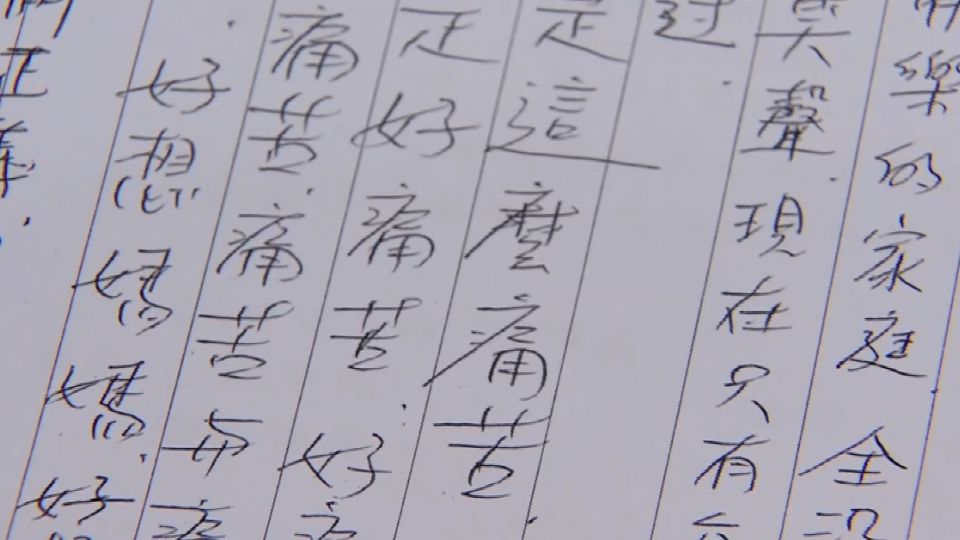 樂的家庭.全沒
聲.現在只有
过.
是這麼痛苦.
好痛苦.好
痛苦.痛苦与
好想媽媽.好
正義.